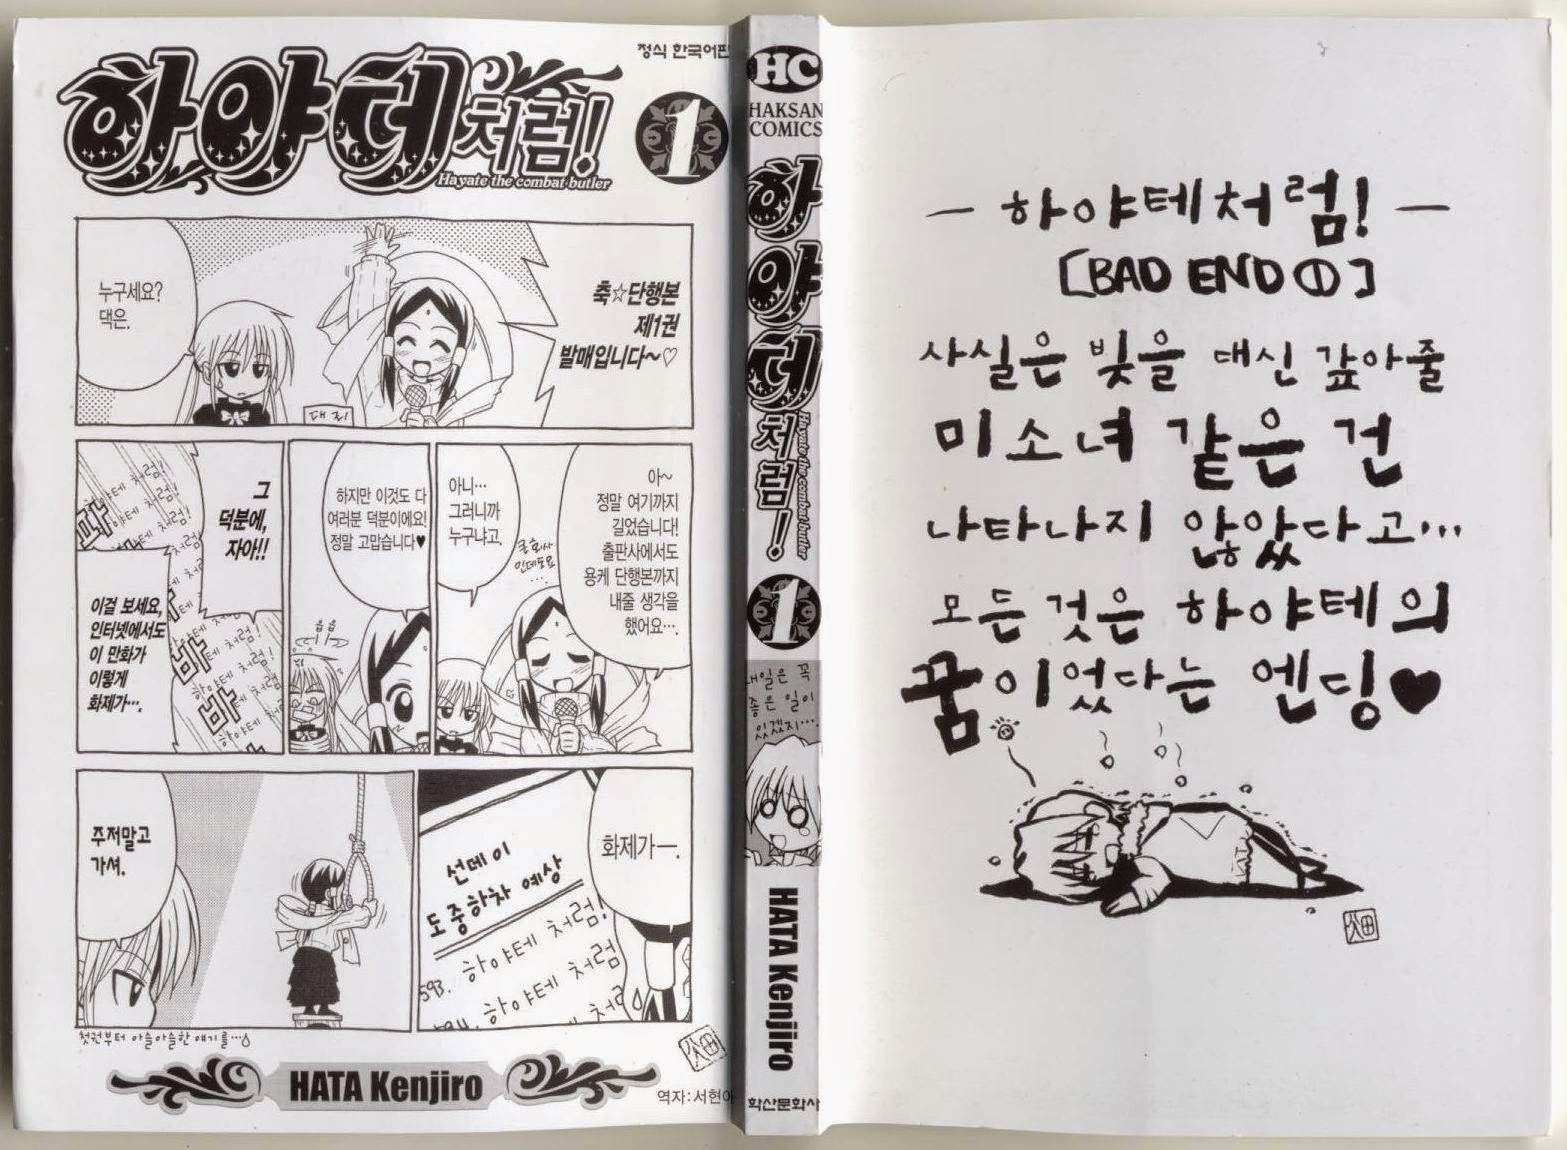 정식 한국어판
하야테처럼!
Hayate the combat butler
1
축☆단행본
제1권
발매입니다~♡
누구세요?
댁은.
아~
정말 여기까지
길었습니다!
출판사에서도
용케 단행본까지
내줄 생각을
했어요….
아니…
그러니까
누구냐고.
하지만 이것도 다
여러분 덕분이에요!
정말 고맙습니다♥
그
덕분에,
자아!!
이걸 보세요,
인터넷에서도
이 만화가
이렇게
화제가….
하야테 처럼!
하야테 처럼!
하야테 처럼!
화제가―.
선데이
도중하차 예상
593. 하야테 처럼!
하야테 처럼
주저말고
가셔.
첫권부터 아슬아슬한 얘기를…
HATA Kenjiro
역자: 서현아
HC
HAKSAN
COMICS
하야테처럼!
Hayate the combat butler
1
내일은 꼭
좋은 일이
있겠지….
HATA Kenjiro
학산문화사
― 하야테처럼! ―
[BAD END の]
사실은 빚을 대신 갚아줄
미소녀 같은 건
나타나지 않았다고…
모든 것은 하야테의
꿈이었다는 엔딩♥